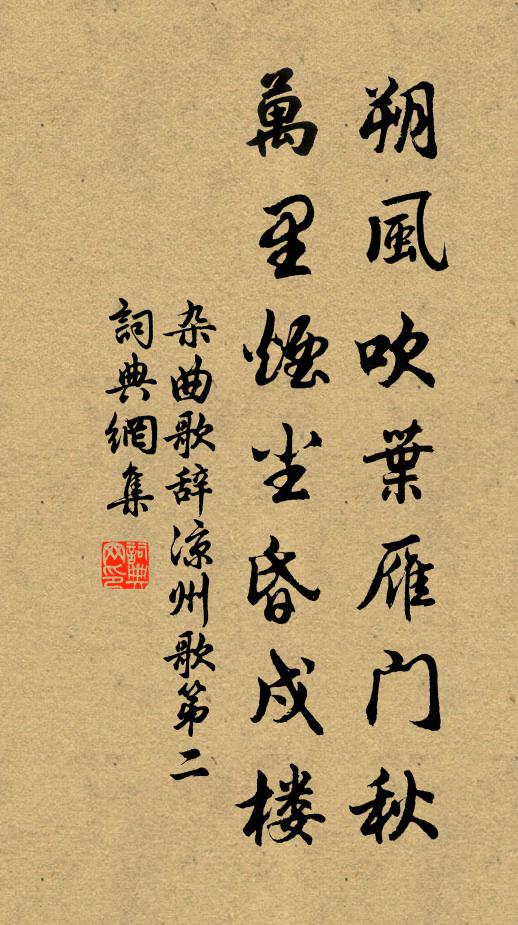 朔風吹葉雁门秋
萬里煙尘昏戍楼
杂曲歌辞凉州歌第二
詞典網集
詞典
网印